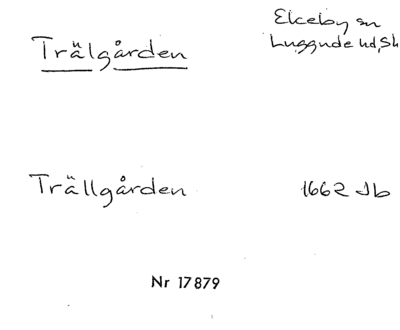 Trälgården
Ekeby sn
Luggude hd, Sk
Trällgården
1662 Jb
Nr 17879